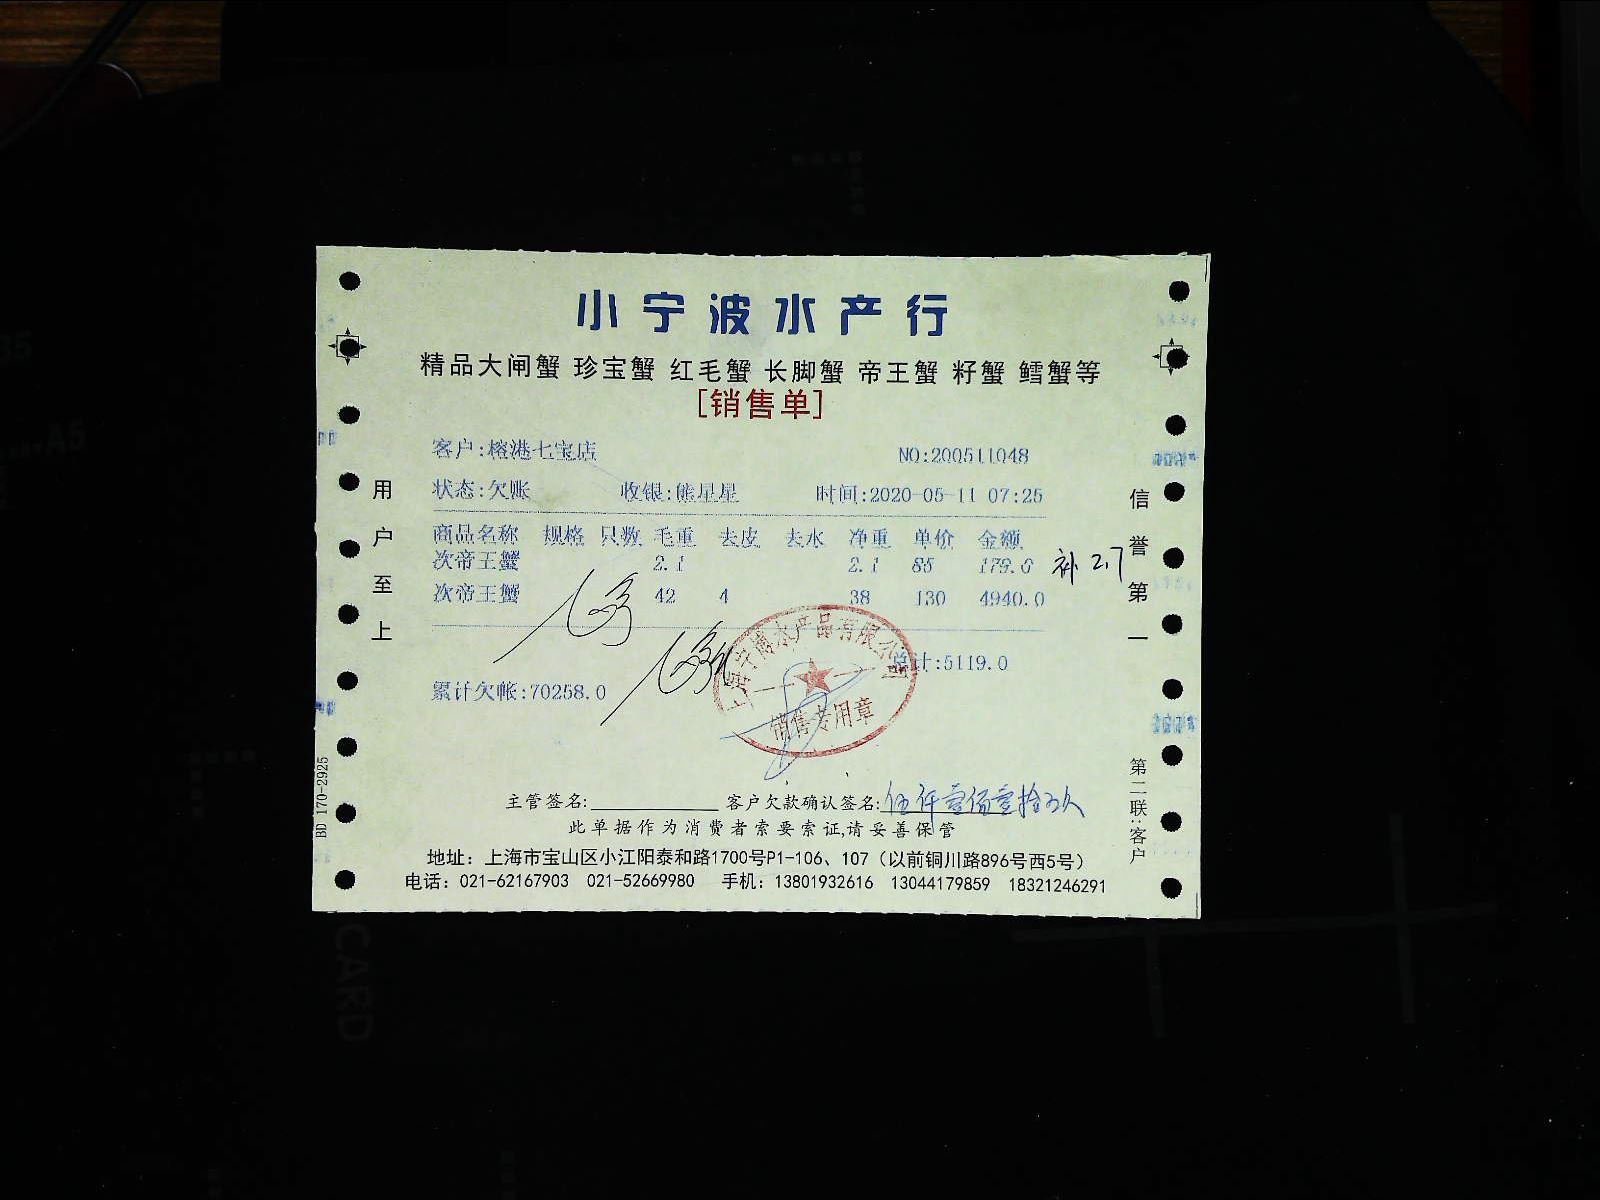 小宁波水产行
精品大闸蟹 珍宝蟹 红毛蟹 长脚蟹 帝王蟹 籽蟹 鳕蟹等
[销售单]
客户:榕港七宝店 NO:200511048
状态:欠账 收银:熊星星 时间:2020-05-11 07:25
商品名称 规格 只数 毛重 去皮 去水 净重 单价 金额
次帝王蟹 2.1 2.1 85 179.0 补 2.7
次帝王蟹 42 4 38 130 4940.0
总计:5119.0
累计欠帐:70258.0
销售专用章
主管签名: 客户欠款确认签名:伍仟壹佰壹拾玖
此单据作为消费者索要索证,请妥善保管
地址：上海市宝山区小江阳泰和路1700号P1-106、107（以前铜川路896号西5号）
电话：021-62167903 021-52669980 手机：13801932616 13044179859 18321246291
用户至上
信誉第一
第二联:客户
BD 170-2925
CARD
A5